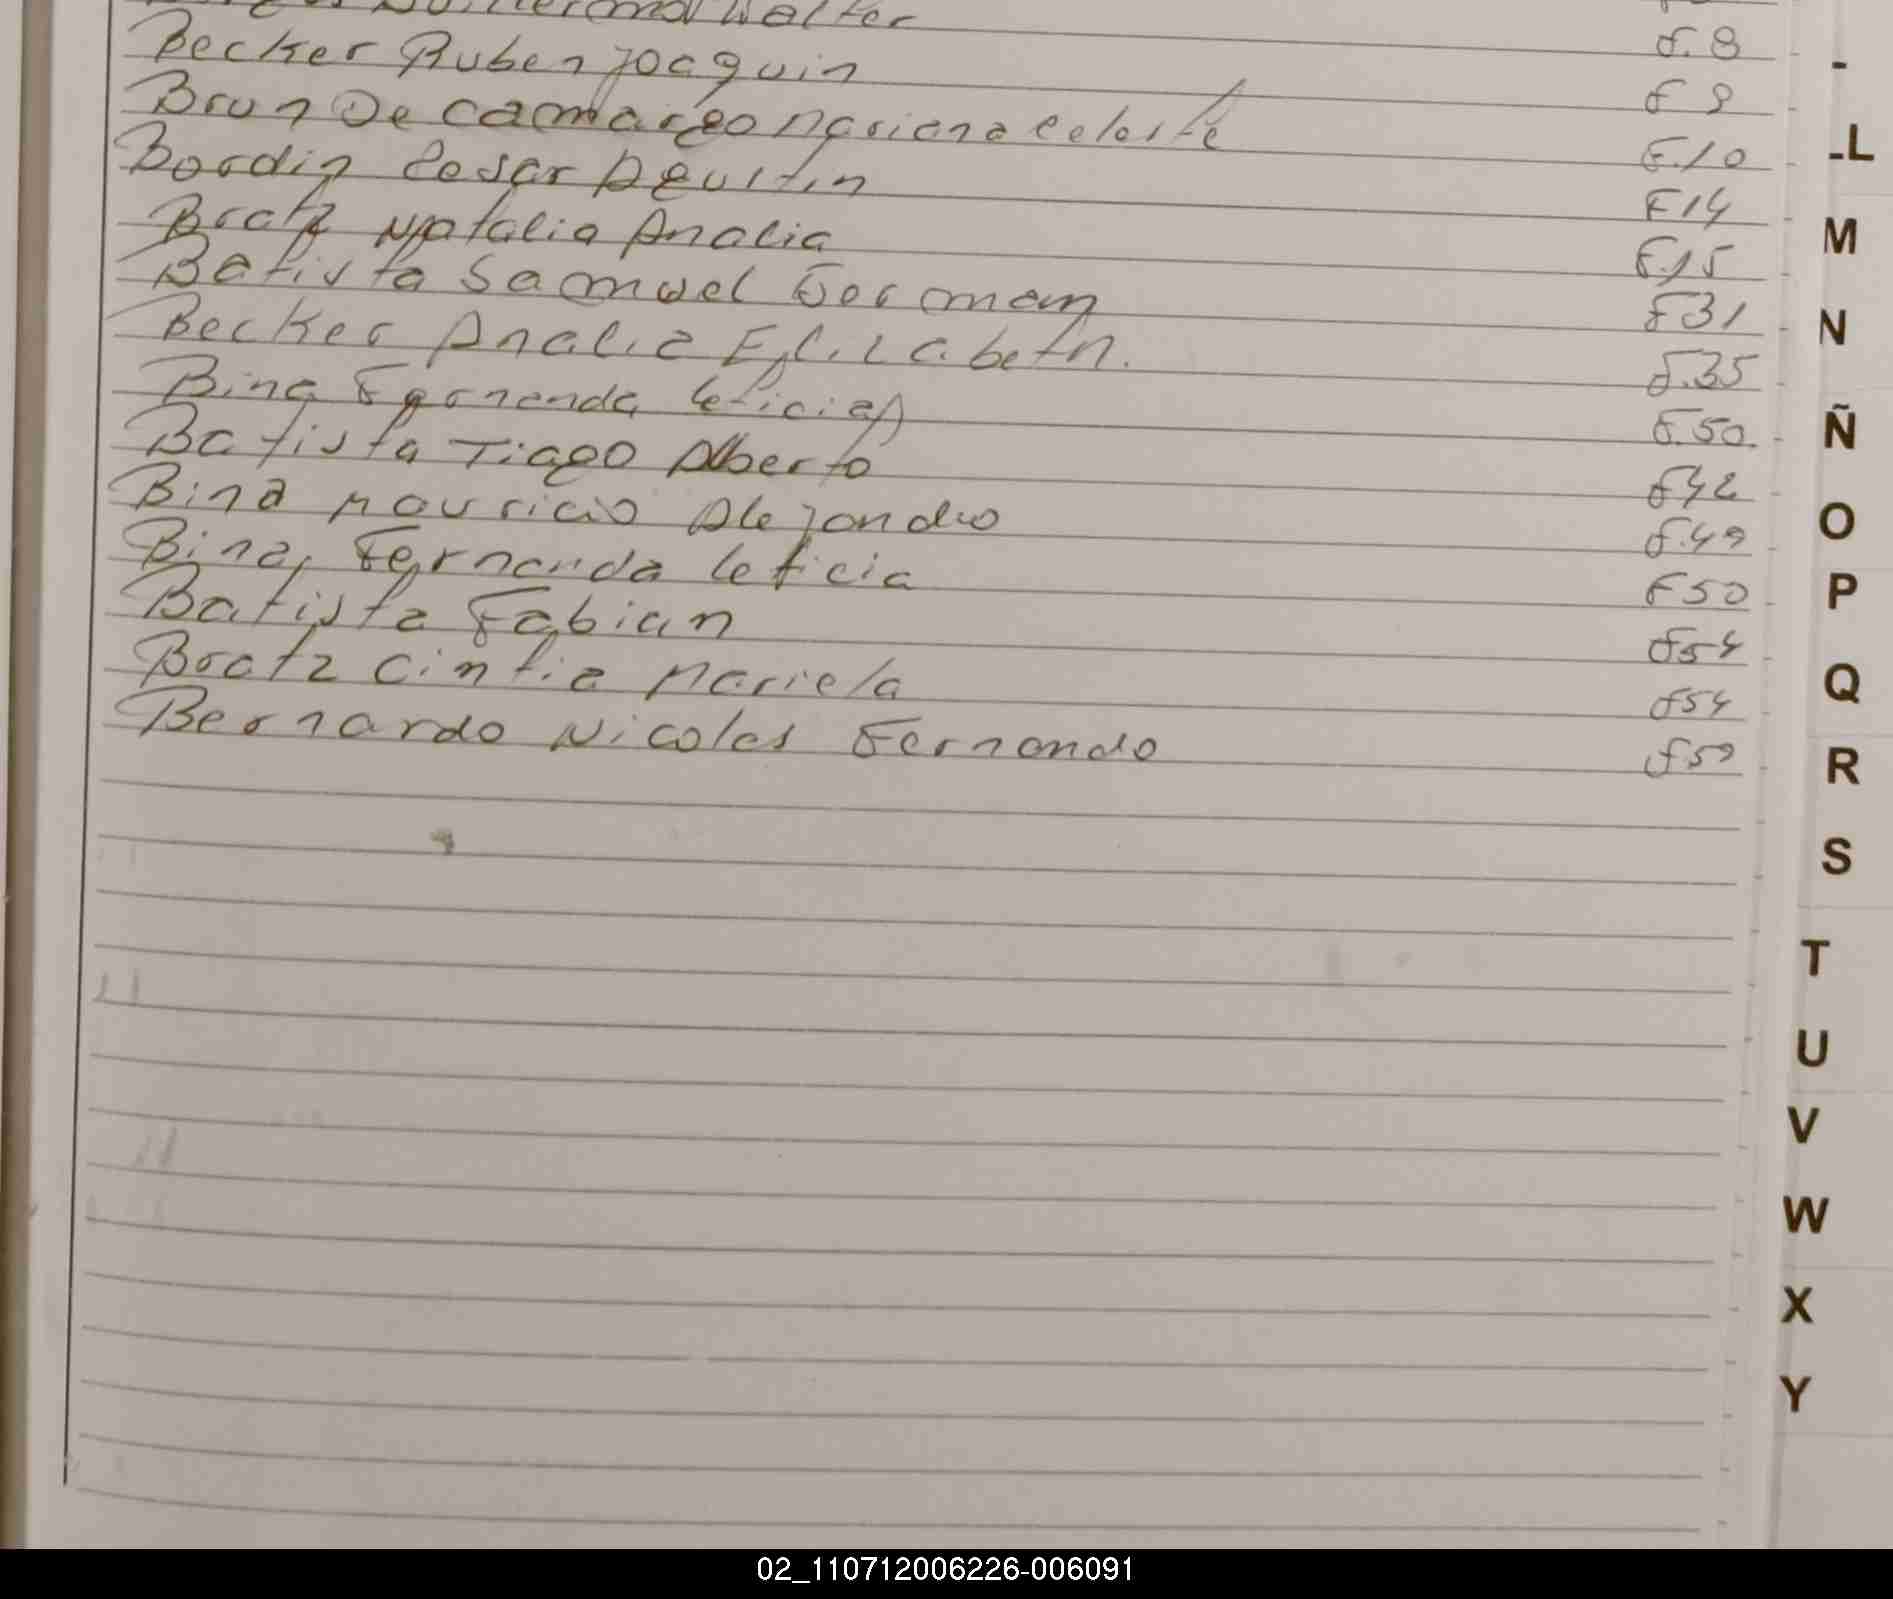 Walter
Becker Ruben Joaquin f. 8
Brun De Camargo Mariana Celeste f 9
Bordin Cesar Agustin F.10
Bratz Natalia Analia F14
Batista Samuel German F.15
Becker Analia Elizabeth. F31
Bina Fernanda Leticia f.35
Batista Tiago Alberto F.50.
Bina Mauricio Alejandro F42
Bina, Fernanda Leticia f.49
Batista Fabian F50
Bratz Cintia Mariela f54
Bernardo Nicolas Fernando f54
f59
L
M
N
Ñ
O
P
Q
R
S
T
U
V
W
X
Y
02_110712006226-006091